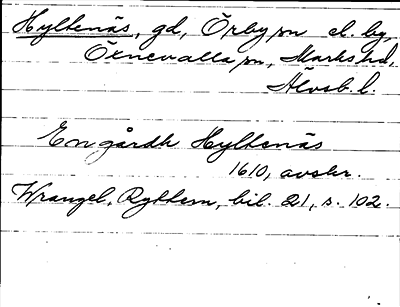 Hyltenäs, gd, Örby sn el. by,
Öxnevalla sn, Marks hd,
Älvsb. l.
En gårdh Hyltenäs
1610, avskr.
Wrangel, Ryttern, bil. 21, s. 102.